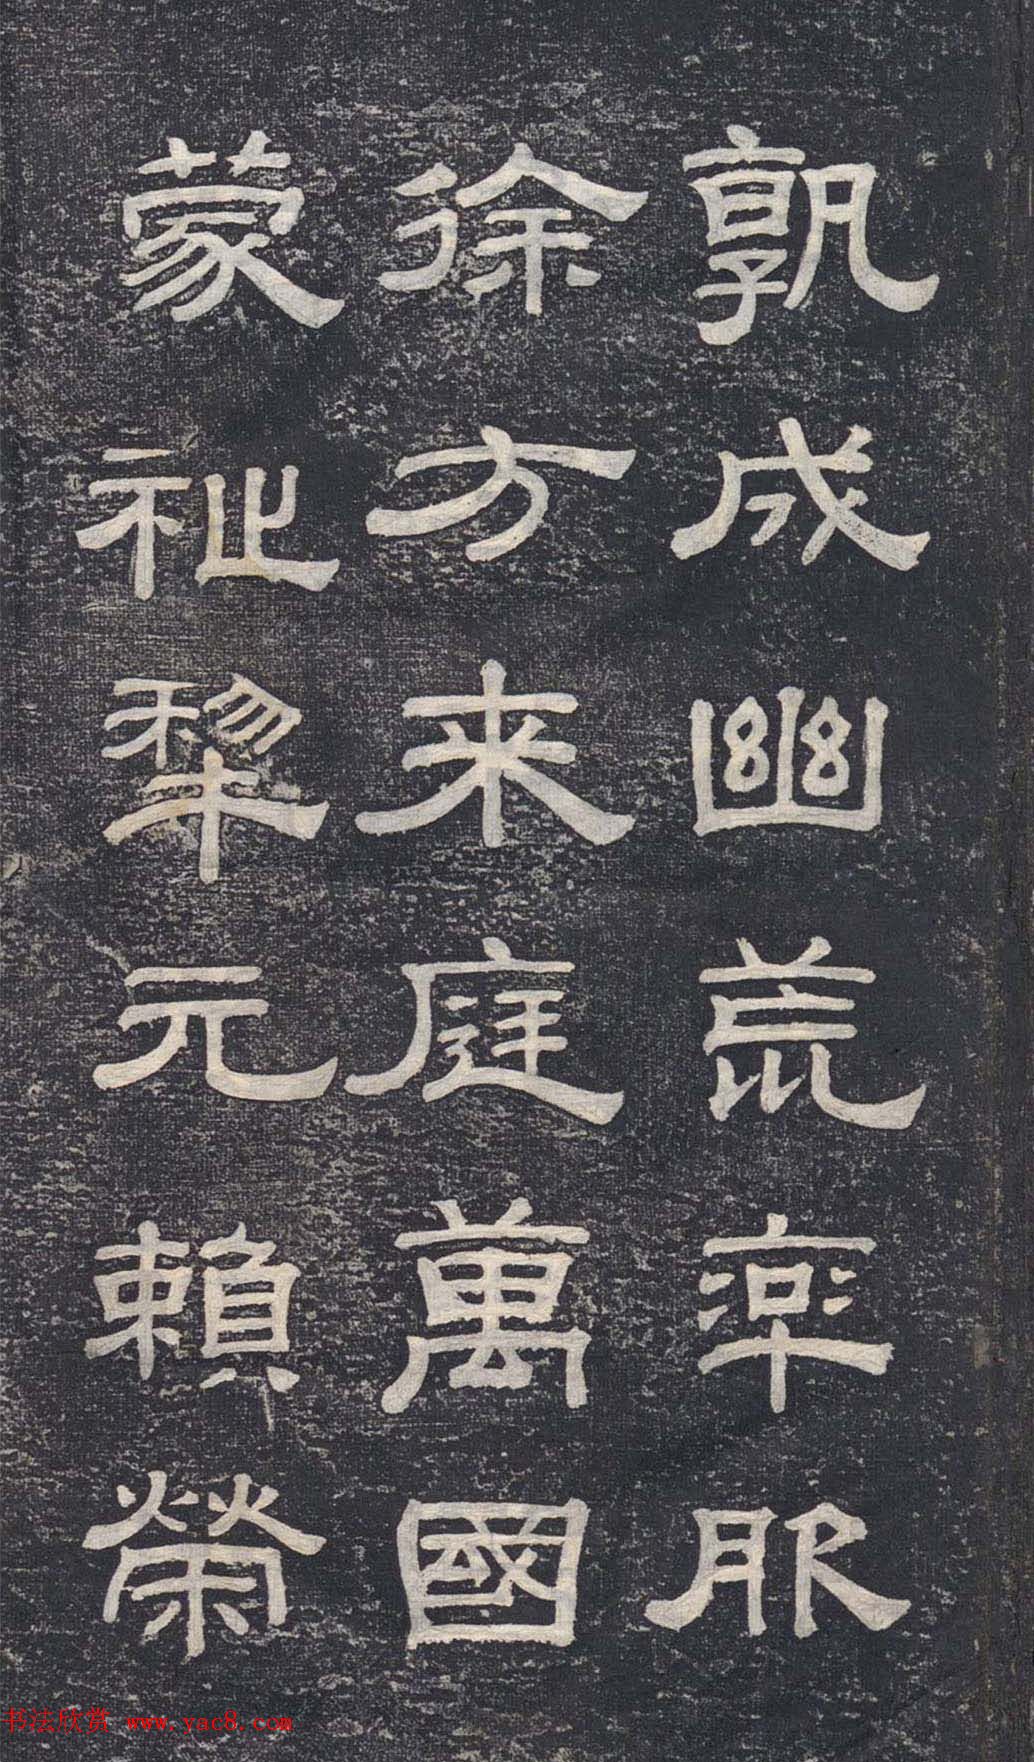 孰成幽荒率服
徐方来庭萬國
蒙祉犂元賴榮
书法欣赏 www.yac8.com